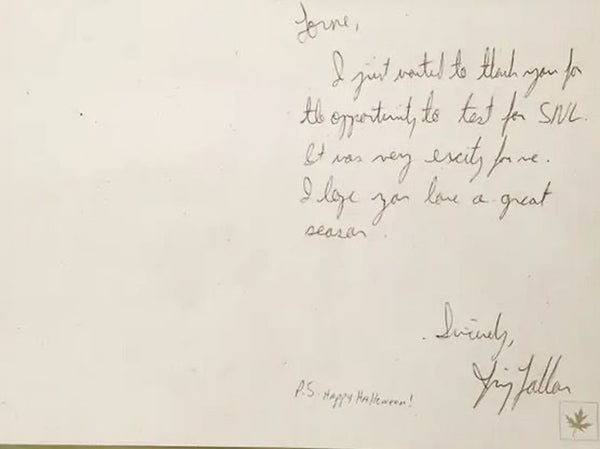 Lorne,
I just wanted to thank you for
the opportunity to test for SNL.
It was very exciting for me.
I hope you have a great
season.
Sincerely,
Jimmy Fallon
P.S. Happy Halloween!